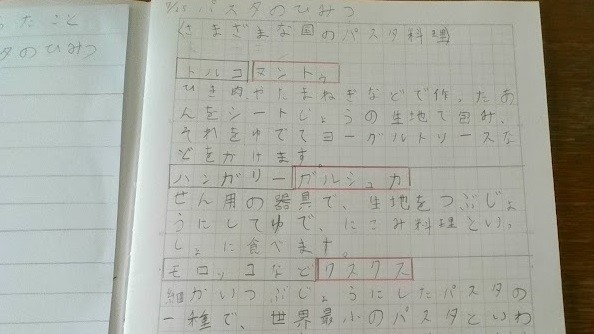 った こと
タのひみつ
9/15 パスタのひみつ
〈さまざまな国のパスタ料理〉
トルコ マントゥ
ひき肉やたまねぎなどで作ったあ
んをシートじょうの生地で包み、
それをゆでてヨーグルトソースな
どをかけます。
ハンガリー ガルシュカ
せん用の器具で、生地をつぶじょ
うにしてゆで、にこみ料理といっ
しょに食べます。
モロッコなど クスクス
細かいつぶじょうにしたパスタの
一種で、世界最小のパスタといわ